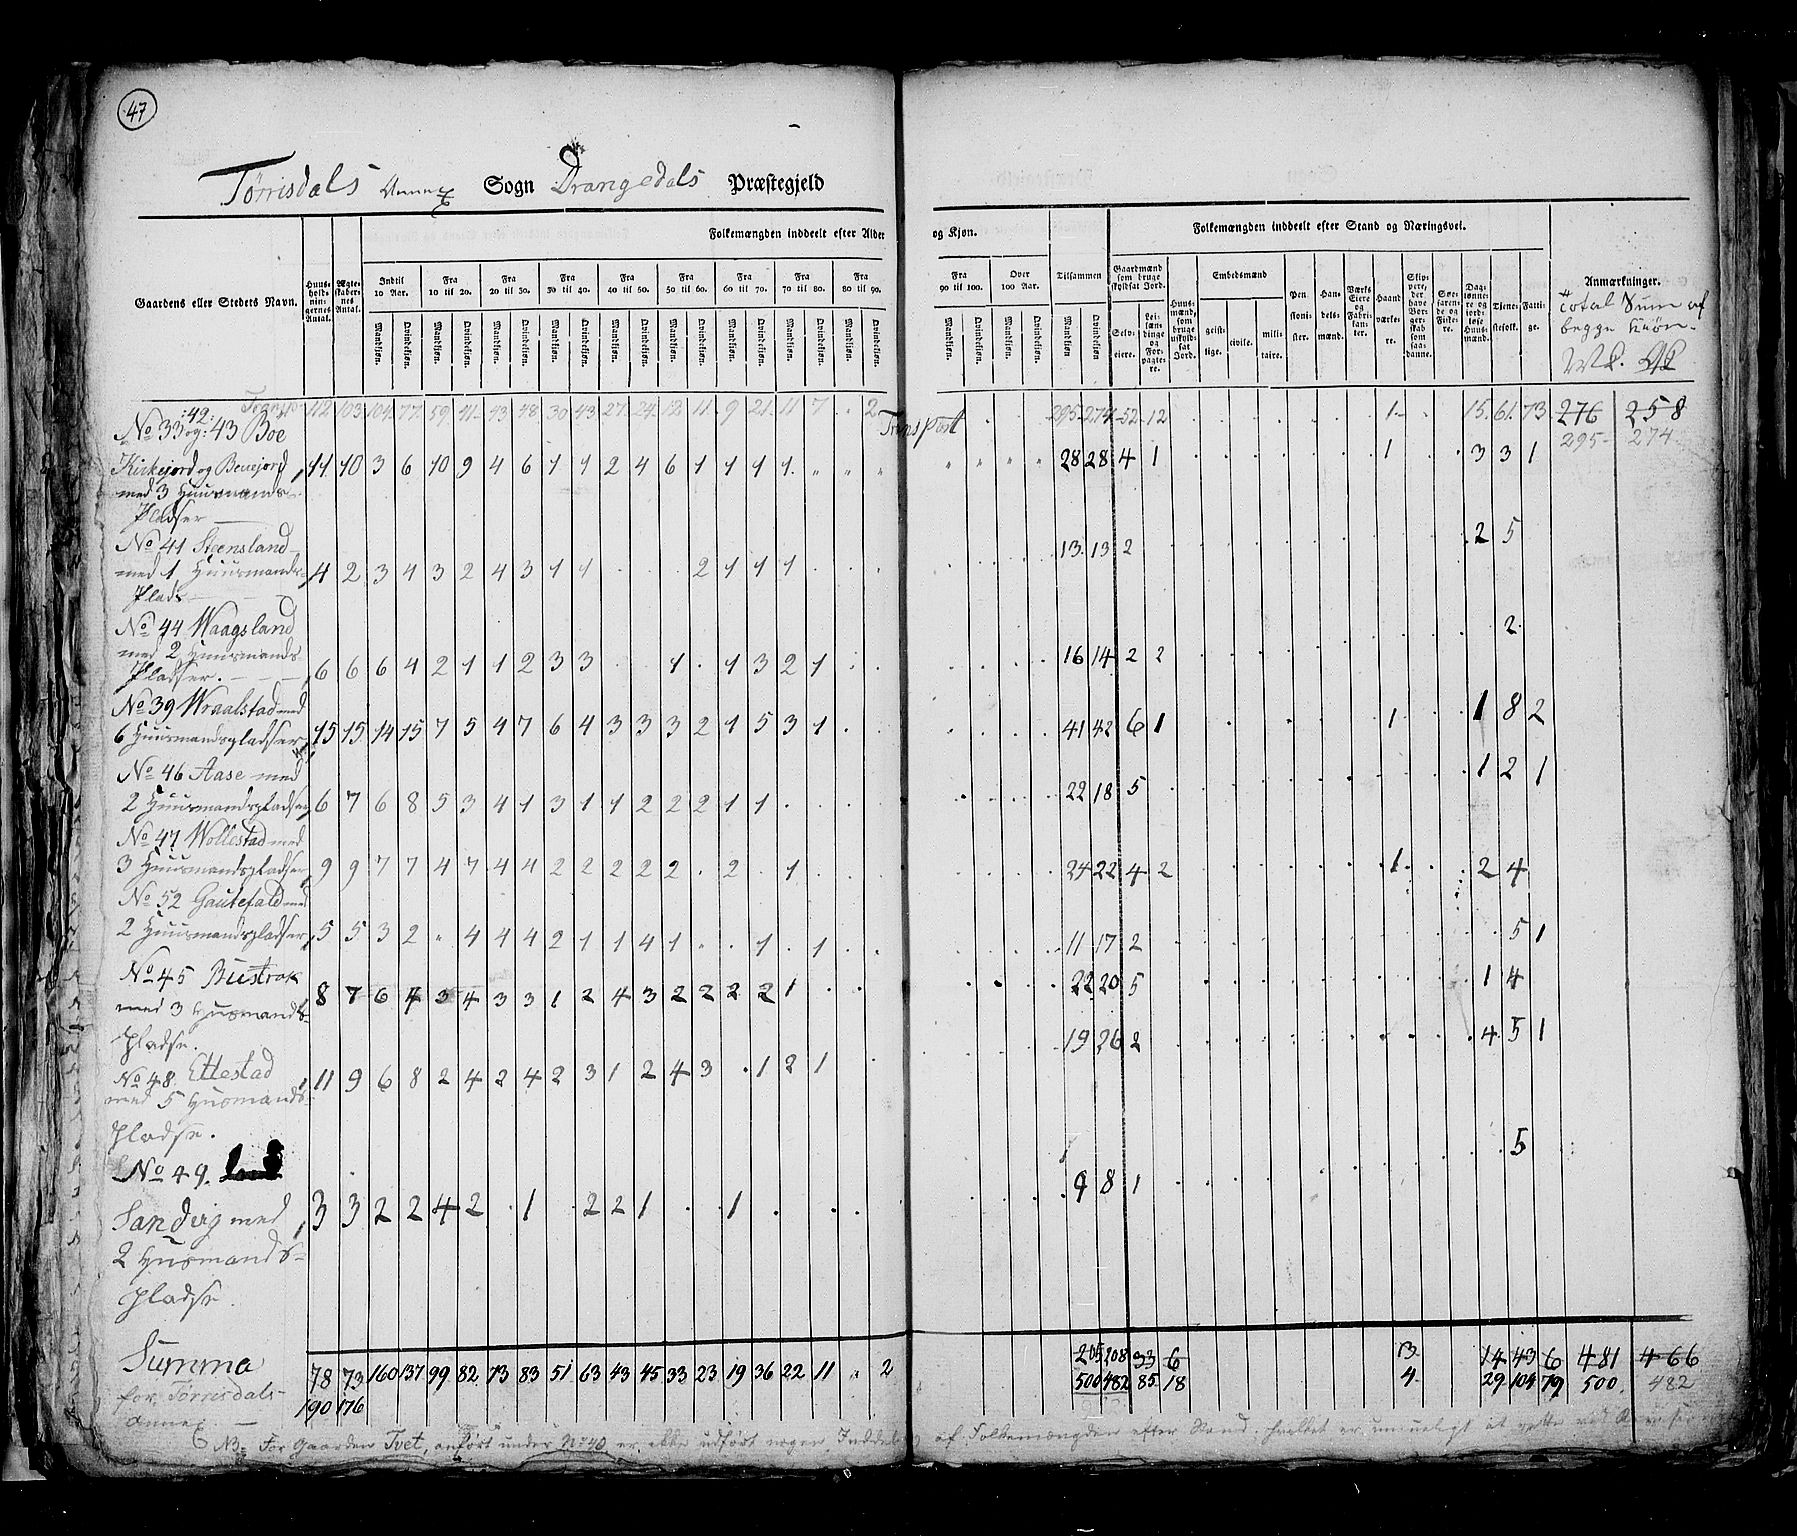 47
Tørrisdals Annex Sogn Drangedals Præstegjeld
Gaardens eller Stedets Navn.
Huus-holdningernes Antal.
Ægteskabernes Antal.
Folkemængden inddeelt efter Alder og Kjøn.
Indtil 10 Aar. Fra 10 til 20. Fra 20 til 30. Fra 30 til 40. Fra 40 til 50. Fra 50 til 60. Fra 60 til 70. Fra 70 til 80. Fra 80 til 90. Fra 90 til 100. Over 100 Aar. Tilsammen
Mandkjøn. Qvindekjøn.
Folkemængden inddeelt efter Stand og Næringsvei.
Gaardmænd som bruge skyldsat Jord.
Selveiere. Leilændinge og Forpagtere.
Huusmænd, som bruge uskyldsat Jord.
Embedsmænd
geistlige. civile. militaire.
Pensionister. Handelsmænd. Værks Eiere og Fabrikanter. Haandværkere. Skippere, der have Borgerskab som saadanne. Søefarende og Fiskere. Dagløn­nere og jordløse Huusmænd. Tjenestefolk. Fattige.
Anmærkninger.
Total Sum af begge Kiøn.
M K. Q K
Transp. 112 103 104. 77. 59 41. 43 48 30 43 27. 24. 12 11. 9 21. 11 7 . . 2 Transport 295 274 52 12 1 15. 61. 73 276 258
295 274
No 33 :42: og: 43 Boe
Kirkejord og Benejord 11 10 3 6 10 9 4 6 1 1 2 4 6 1 1 1 1 1 28 28 4 1 1 3 3 1
med 3 Huusmands-
Pladser
No 41 Steensland
med 1 Huusmands- 4 2 3 4 3 2 4 3 1 1 2 1 1 1 13 13 2 2 5
Plads
No 44 Waagsland
med 2 Huusmands-
Pladser. 6 6 6 4 2 1 1 2 3 3 1 1 3 2 1 16 14 2 2 2
No 39 Wraalstad med
6 Huusmandspladser 15 15 14 15 7 5 4 7 6 4 3 3 3 2 1 5 3 1 41 42 6 1 1 1 8 2
No 46 Aase med
2 Huusmandspladser 6 7 6 8 5 3 4 1 3 1 1 2 2 2 1 1 22 18 5 1 2 1
No 47 Wollestad med
3 Huusmandspladser 9 9 7 7 4 7 4 4 2 2 2 2 2 2 1 24 22 4 2 1 2 4
No 52 Gautefald med
2 Huusmandspladser 5 5 3 2 4 4 4 2 1 1 4 1 1 1 11 17 2 5 1
No 45 Bustrak
med 3 Husmands- 8 7 6 4 3 4 3 3 1 2 4 3 2 2 2 2 1 22 20 5 1 4
pladse.
No 48. Ettestad 11 9 6 8 2 4 2 4 2 3 1 2 4 3 1 2 1 19 26 2 4 5 1
med 5 Husmands-
pladse.
No 49.
Sandvig med 3 3 2 2 4 2 1 2 2 1 1 9 8 1 5
2 Husmands-
pladse.
Summa 78 73 160 137 99 82 73 83 51 63 43 45 33 23 19 36 22 11 2 205 208 33 6 3 14 43 6 481 466
for Tørrisdals 500 482 85 18 4 29 104 79 500 482
Annex. 190 176
NB: For Gaarden Tvet, anført under No 40, er ikke udført nogen Inddeling af Folkemængden efter Stand, hvilket er umueligt at